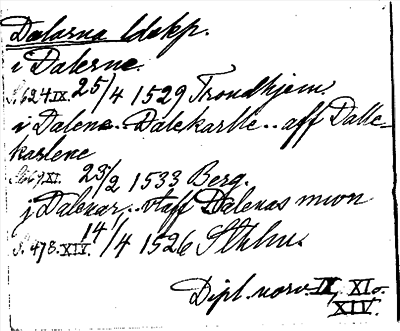 Dalarna ldskp.
i Dalerne.
S. 624. IX. 25/4 1529 Trondhjem.
i Dalene.. Dalekarlle.. aff Dalle-
karlene
S. 679. XI. 23/2 1533 Berg.
j Dalenar.. utaff Dalenas mwn
S. 478. XIV. 14/4 1526 Sthlm.
Dipl. norv. IX, XI o.
XIV.